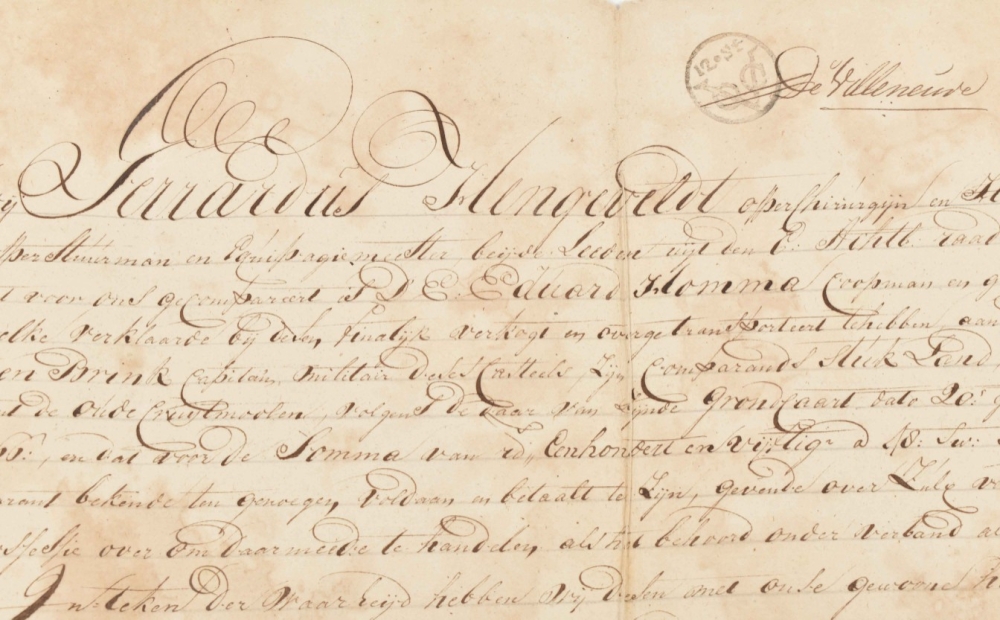 12 St
De Villeneuve
ij Gerrardus Hengeveldt opperchirurgyn en H
pperstuurman en Equipagiemeester beijde Leeden uijt den E: Achtb: raad
t voor ons gecompareert is D'E: Eduard Homma Coopman en g
elke verklaarde bij desen finalijk verkogt en overgetransporteert tehebben aan
en Brink Capitain militair deses Casteels, Zijn Comparands stuk Land
de oude Cruytmoolen, volgens de daar van Zijnde Grondcaart dato 20:
6:, en dat voor de Somma van rd„ Eenhondert en vijftig a 48: sw:
arant bekende ten genoegen voldaan en betaalt te Zijn, gevende over Zulx
ossessie over om daarmeede te handelen als het behoord onder verband
In teken der Waarheijd hebben Wij desen met onse gewoone h